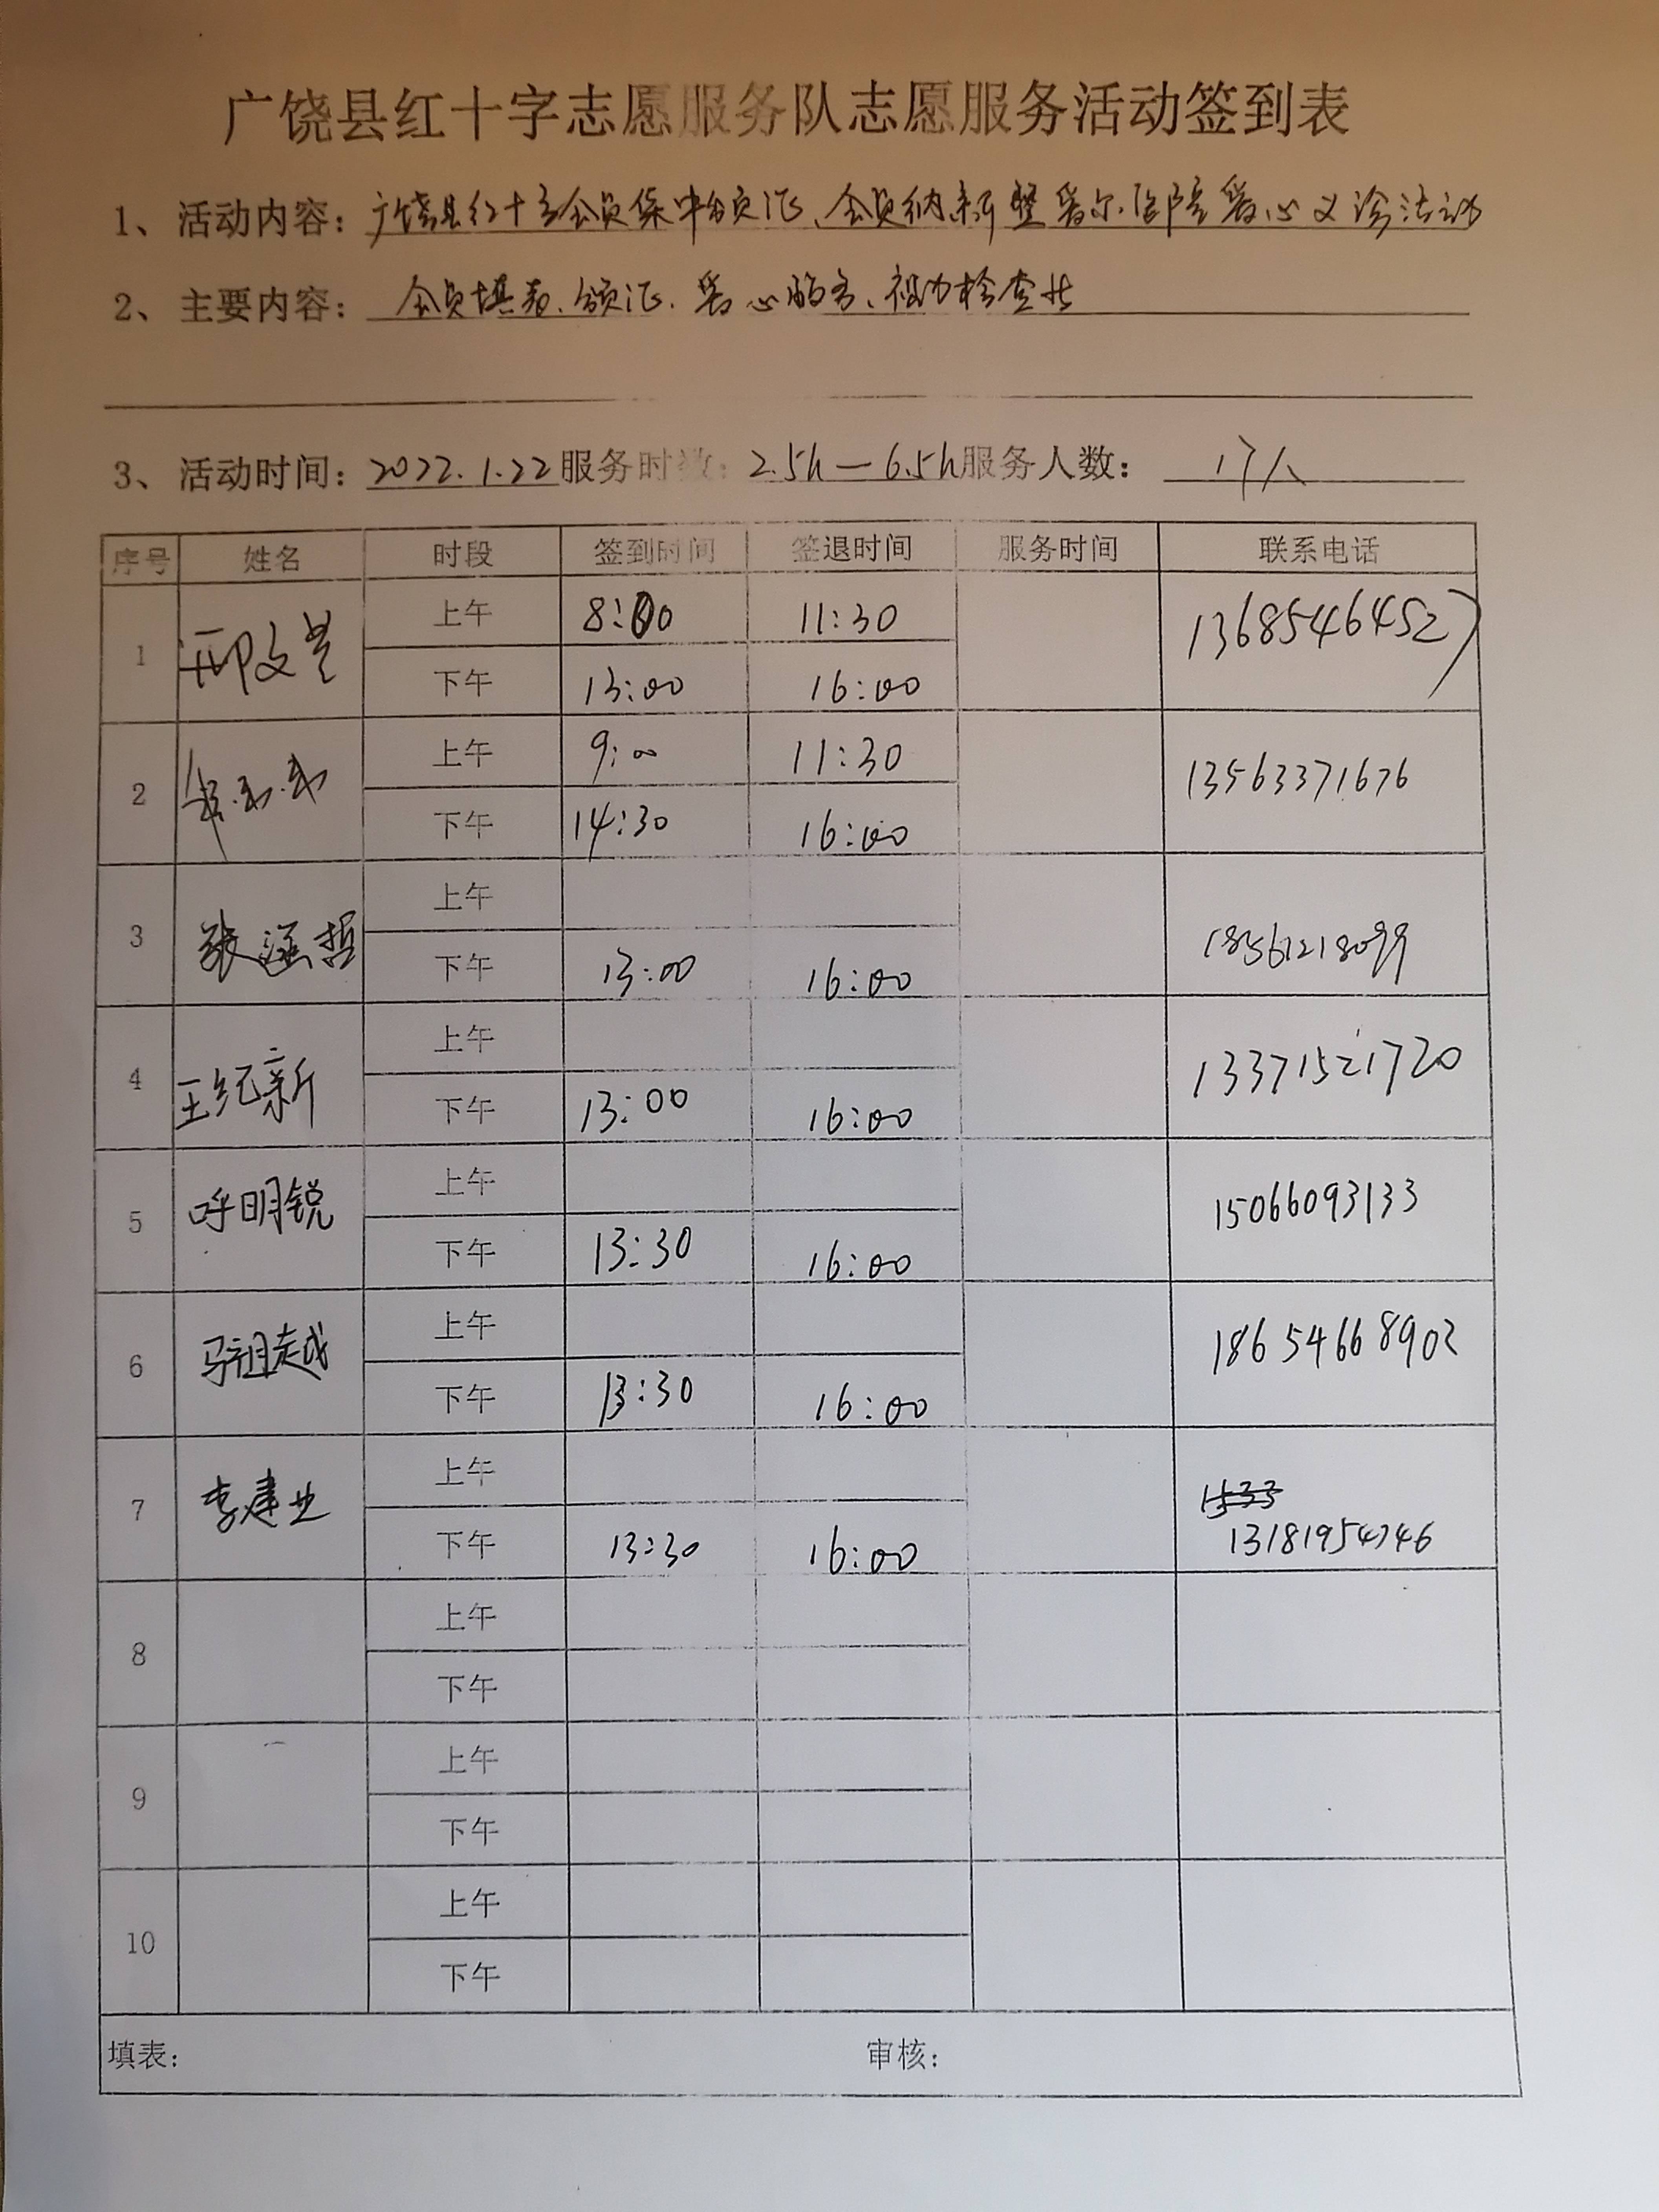 广饶县红十字志愿服务队志愿服务活动签到表
1、活动内容：广饶县红十字会会员集中领证、会员纳新暨爱尔医院爱心义诊活动
2、主要内容：会员填表、领证、爱心服务、视力检查
3、活动时间：2022.1.22 服务时数：2.5h—6.5h 服务人数：人
序号 姓名 时段 签到时间 签退时间 服务时间 联系电话
1 邢文 上午 8:00 11:30 13685464527
下午 13:00 16:00
2 上午 9:00 11:30 13563371676
下午 14:30 16:00
3 张涵哲 上午 18561218099
下午 13:00 16:00
4 王纪新 上午 13371521720
下午 13:00 16:00
5 呼明锐 上午 15066093133
下午 13:30 16:00
6 马祖越 上午 18654668902
下午 13:30 16:00
7 李建业 上午 1533
下午 13:30 16:00 13181954746
8 上午
下午
9 上午
下午
10 上午
下午
填表： 审核：